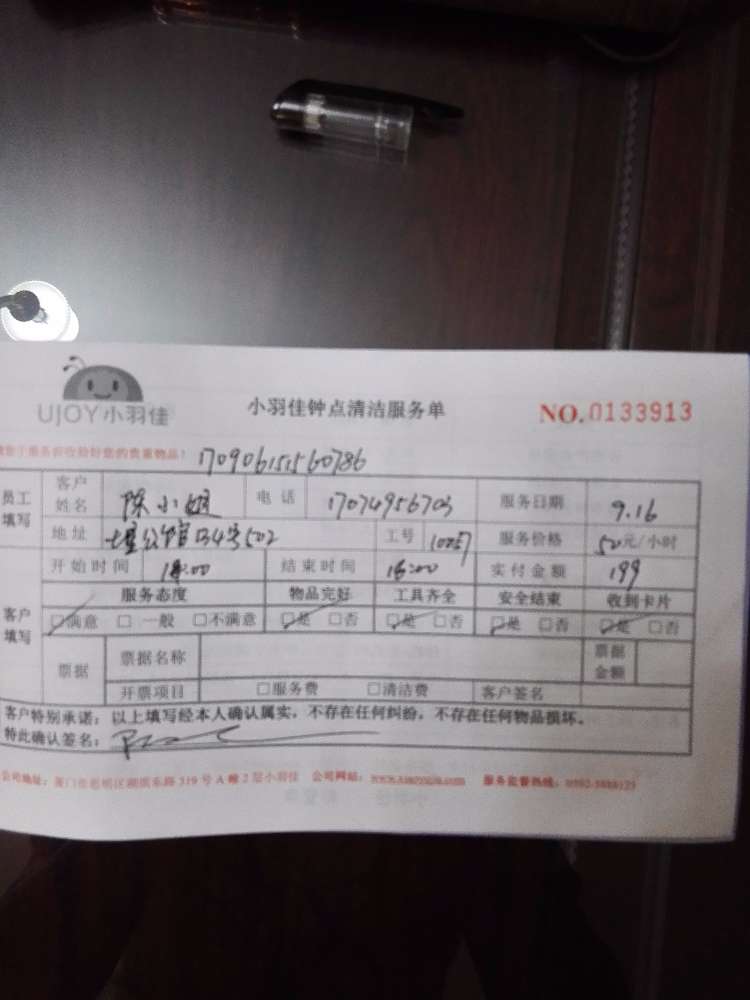 UJOY小羽佳 小羽佳钟点清洁服务单 NO.0133913
您贵重物品!
员工填写 客户姓名 陈小姐 电话 17074956703 服务日期 9.16
地址 公馆 502 工号 服务价格 50元/小时
开始时间 结束时间 16:00 实付金额 199
客户填写 服务态度 物品完好 工具齐全 安全结束 收到卡片
□满意 □一般 □不满意 □是 □否 □是 □否 □是 □否 □是 □否
票据 票据名称 票据金额
开票项目 □服务费 □清洁费 客户签名
客户特别承诺:以上填写经本人确认属实,不存在任何纠纷,不存在任何物品损坏。
特此确认签名:
公司地址:厦门市思明区湖滨东路319号A幢2层小羽佳 公司网站: 服务监督热线: